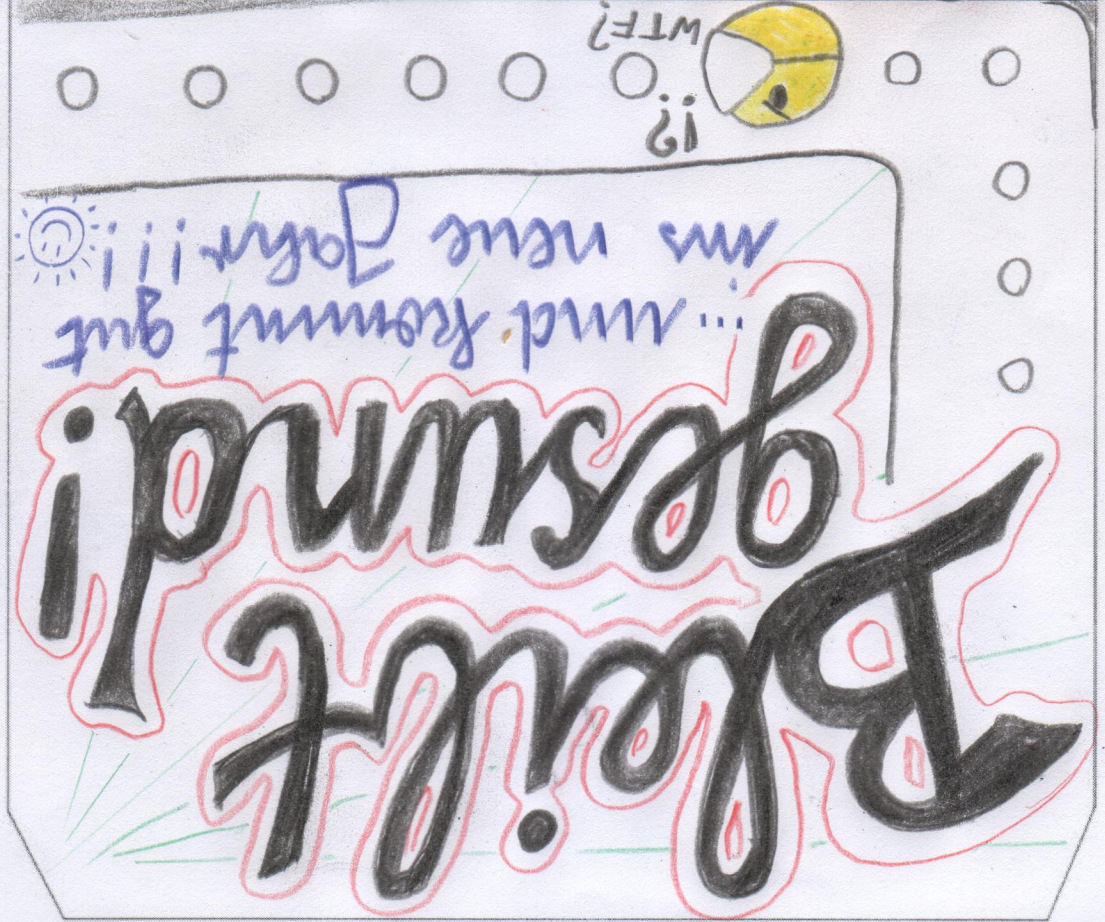 Bleibt
gesund!
...und kommt gut
ins neue Jahr!!!
!?
WTF?